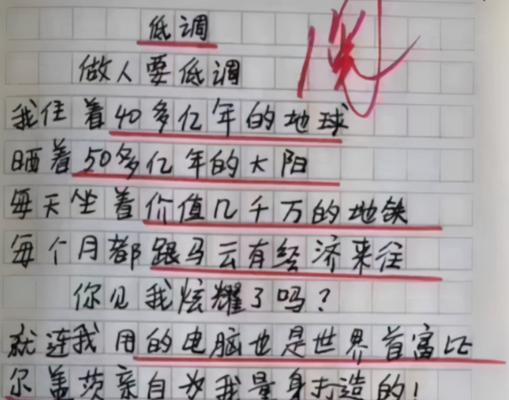 低调
做人要低调
我住着40多亿年的地球
晒着50多亿年的大阳
每天坐着价值几千万的地铁
每个月都跟马云有经济来往
你见我炫耀了吗?
就连我用的电脑也是世界首富比
尔盖茨亲自为我量身打造的!